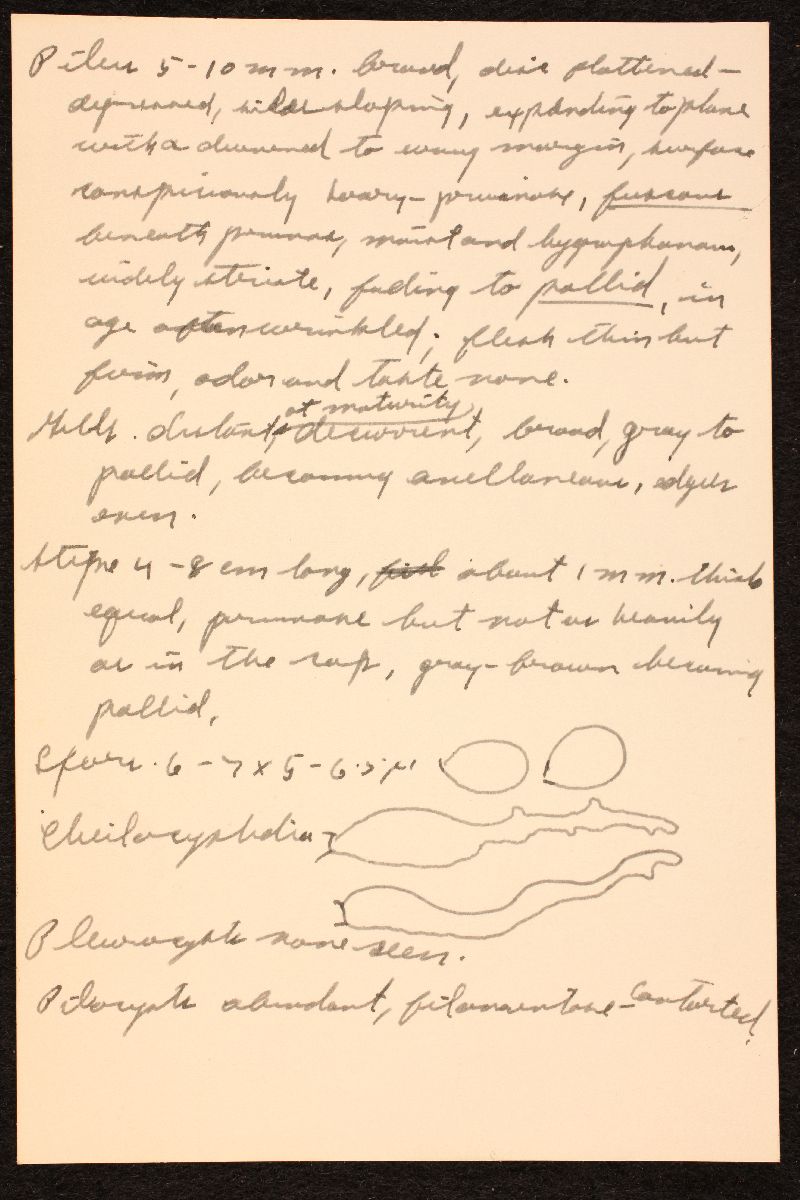 Pileus 5-10 mm. broad, disc flattened-
depressed, sides sloping, expanding to plane
with a decurved to wavy margin, surface
conspicuously hoary-pruinose, fuscous
beneath pruinose, moist and hygrophanous,
widely striate, fading to pallid, in
age often wrinkled; flesh thin but
firm, odor and taste none.
at maturity
Gills. distant, decurrent, broad, gray to
pallid, becoming avellaneous, edges
even.
Stipe 4-8 cm long, about 1 mm. thick
equal, pruinose but not as heavily
as in the cap, gray-brown becoming
pallid.
Spores. 6-7 x 5-6.5 µ
Cheilocystidia-
Pleurocysts none seen.
Pilocysts abundant, filamentose-contorted.